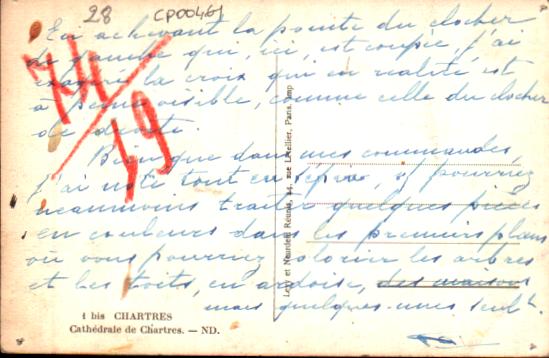 28 CP00461
En achevant la pointe du clocher
de gauche qui, ici, est coupée, j'ai
exagéré la croix qui en réalité est
à peine visible, comme celle du clocher
de droite
Bien que dans mes commandes,
j'ai noté tout en sépia, vs pourriez
néanmoins traiter quelques pièces
en couleurs dans les premiers plans
où vous pourriez colorier les arbres
et les toits, en ardoise, des maisons
mais quelques-unes seult.
19
1 bis CHARTRES
Cathédrale de Chartres. — ND.
Levy et Neurdein Réunis, 44, rue Letellier, Paris. Imp